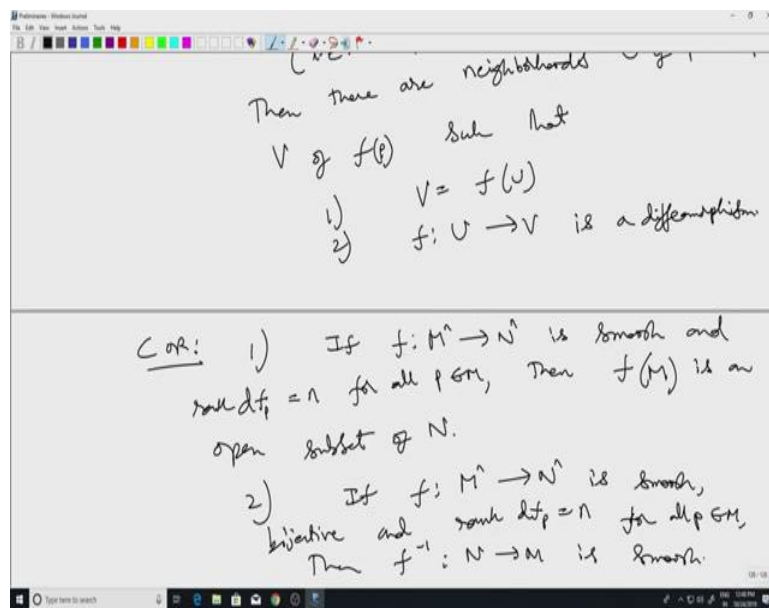 Preliminaries - Windows Journal
File Edit View Insert Actions Tools Help
Then there are neighborhoods U of
V of f(p) such that
1) V = f(U)
2) f: U → V is a diffeomorphism
COR: 1) If f: Mⁿ → Nⁿ is smooth and
rank df_p = n for all p ∈ M, Then f(M) is an
open subset of N.
2) If f: Mⁿ → Nⁿ is smooth,
bijective and rank df_p = n for all p ∈ M,
Then f⁻¹: N → M is smooth.
Type here to search